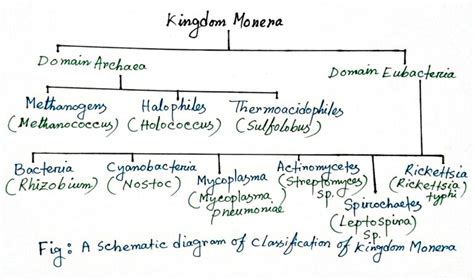 Kingdom Monera
Domain Archaea
Domain Eubacteria
Methanogens
(Methanococcus)
Halophiles
(Holococcus)
Thermoacidophiles
(Sulfolobus)
Bacteria
(Rhizobium)
Cyanobacteria
(Nostoc)
Mycoplasma
(Mycoplasma
pneumoniae)
Actinomycetes
(Streptomyces
sp.)
Spirochaetes
(Leptospira)
Sp.
Rickettsia
(Rickettsia
typhi)
Fig: A schematic diagram of classification of kingdom Monera